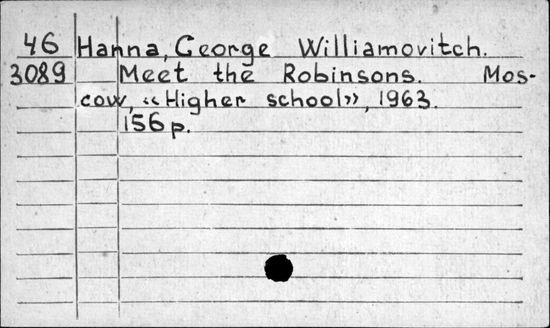 46 Hanna, George Williamovitch.
3089 Meet the Robinsons. Mos-
cow, «Higher school», 1963.
156 p.